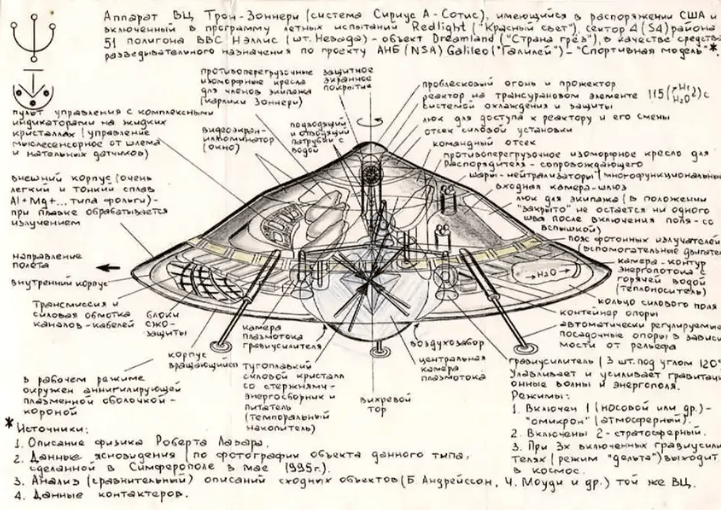 Аппарат ВЦ Трон-Зоннери (система Сириус А-Сотис), имеющийся в распоряжении США и
включенный в программу летных испытаний Redlight ("Красный свет"), сектор 4 (S4) района
51 полигона ВВС Нэллис (шт. Невада) - объект Dreamland ("Страна грёз"), в качестве средства
разведывательного назначения по проекту АНБ (NSA) Galileo ("Галилей") - "Спортивная модель"*.
противоперегрузочные
изоморфные кресла
для членов экипажа
(карлики Зоннери)
защитное
экранное
покрытие
проблесковый огонь и прожектор
реактор на трансурановом элементе 115
системой охлаждения и защиты
люк для доступа к реактору и его смены
отсек силовой установки
командный отсек
противоперегрузочное изоморфное кресло для
Распорядителя - сопровождающего
шары-нейтрализаторы (многофункциональные)
входная камера-шлюз
люк для экипажа (в положении
"закрыто" не остается ни одного
шва после включения поля - со
вспышкой)
пояс фотонных излучателей
(вспомогательные двигате
камера-контур
энергопотока с
горячей водой
(теплоноситель)
кольцо силового поля
контейнер опоры
автоматически регулируемые
посадочные опоры в зависи
мости от рельефа
пульт управления с комплексными
индикаторами на жидких
кристаллах (управление
мыслесенсорное от шлема
и нательных датчиков)
видеоэкран-
иллюминатор
(окно)
подводящий
и отводящий
патрубки с
водой
внешний корпус (очень
легкий и тонкий сплав
Al+Mg+... типа фольги) -
при плавке обрабатывается
излучением
направление
полёта
внутренний корпус
H₂O
Трансмиссия и
силовая обмотка
каналов-кабелей
блоки
СЖО-
защиты
корпус
вращающийся
камера
плазмотока
гравиусилителя
тугоплавкий
силовой кристалл
со стержнями-
энергосборник и
питатель
(темпоральный
накопитель)
вихревой
тор
воздухозабор
центральная
камера
плазмотока
гравиусилитель (3 шт. под углом 120°
Улавливает и усиливает гравитаци
онные волны и энергополя.
Режимы:
1. Включен 1 (носовой или др.) -
"омикрон" (атмосферный).
2. Включены 2 - стратосферный.
3. При 3х включенных гравиусили
телях (режим "дельта") выходит
в космос.
в рабочем режиме
окружен аннигилирующей
плазменной оболочкой-
короной
* Источники:
1. Описание физика Роберта Лазара.
2. Данные ясновидения (по фотографии объекта данного типа,
сделанной в Симферополе в мае 1995г.).
3. Анализ (сравнительный) описаний сходных объектов (Б. Андрейссон, Ч. Моуди и др.) той же ВЦ.
4. Данные контактеров.